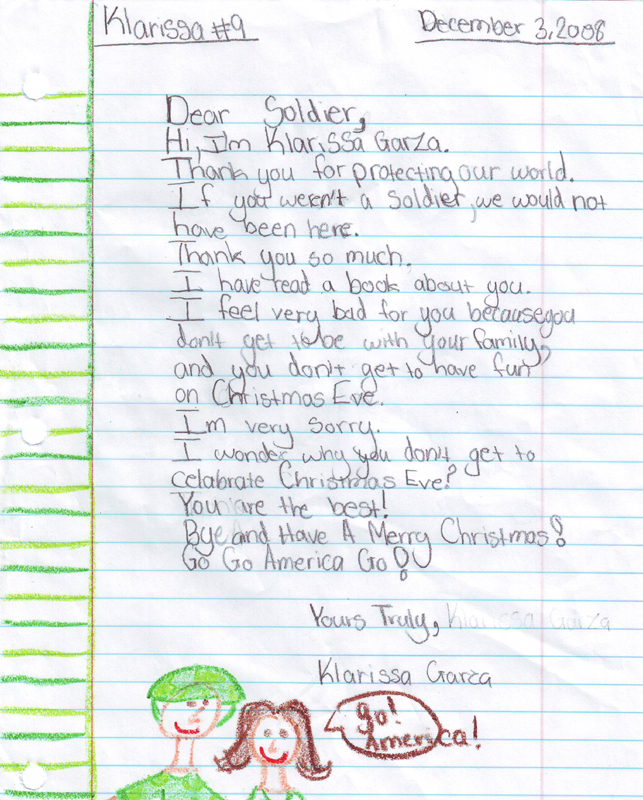 Klarissa #9
December 3, 2008
Dear Soldier,
Hi, I'm Klarissa Garza.
Thank you for protecting our world.
If you weren't a soldier, we would not
have been here.
Thank you so much.
I have read a book about you.
I feel very bad for you because you
don't get to be with your family,
and you don't get to have fun
on Christmas Eve.
I'm very sorry.
I wonder why you don't get to
celabrate Christmas Eve?
You are the best!
Bye and Have A Merry Christmas!
Go Go America Go!
Yours Truly, Klarissa Garza
Klarissa Garza
go!
America!